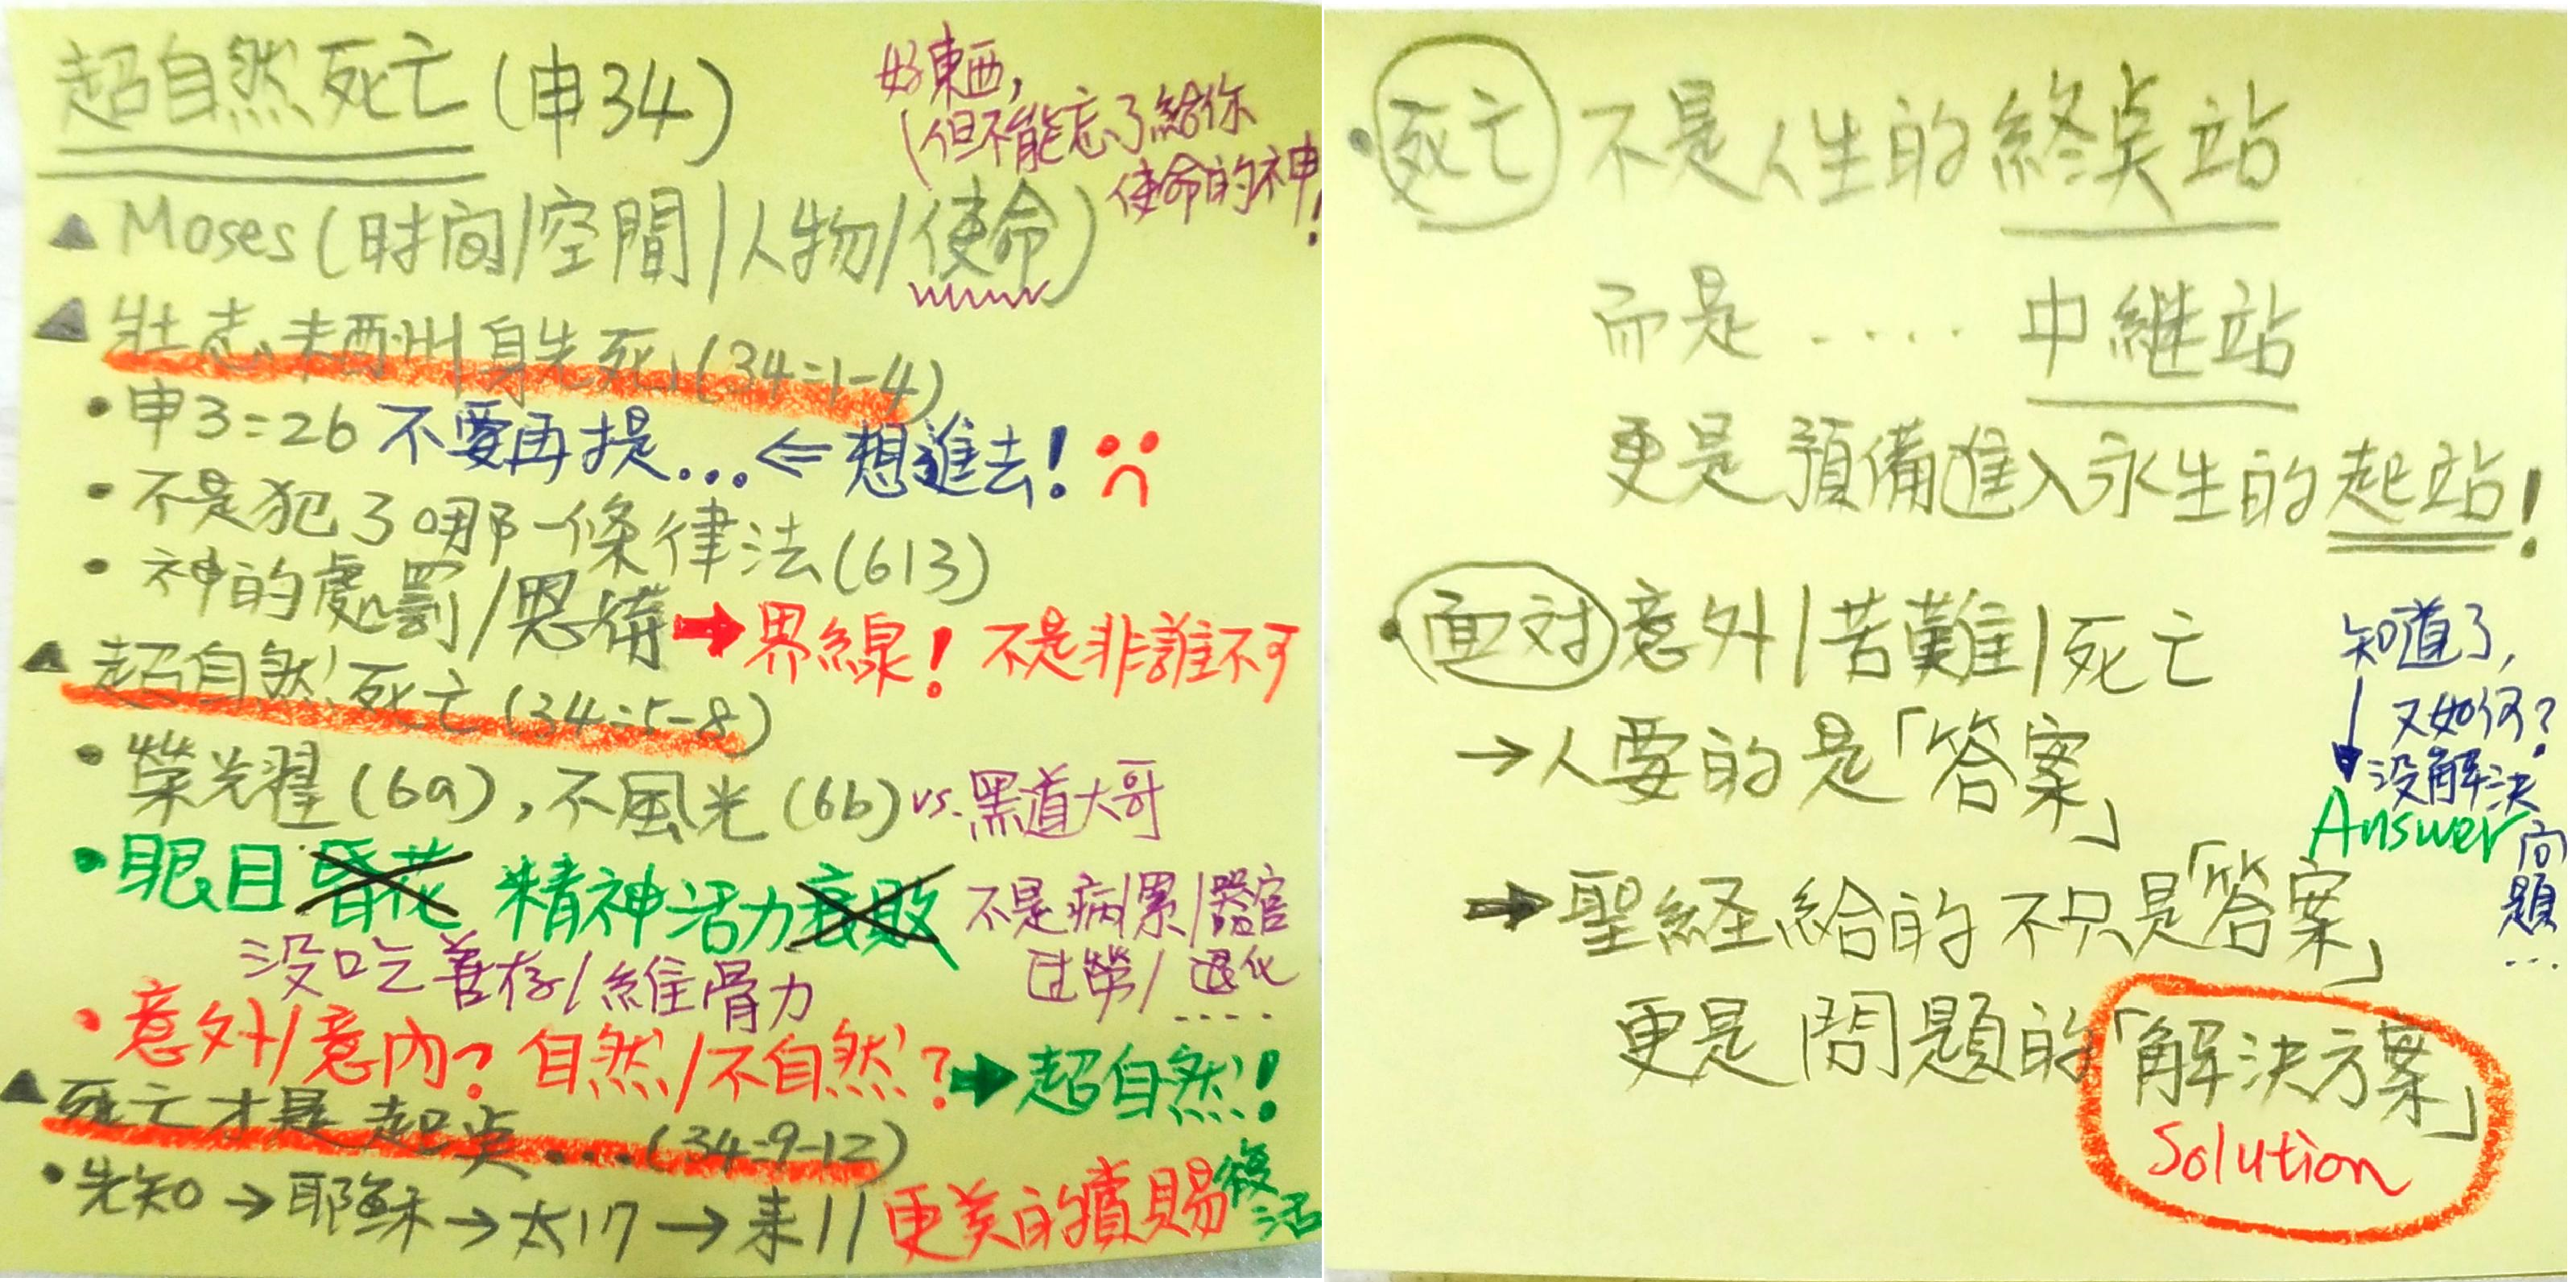 超自然死亡(申34)
好東西,
(但不能忘了給你
使命的神!
▲ Moses(时间/空間/人物/使命)
▲ 壯志未酬身先死(34:1-4)
• 申3:26 不要再提... ⇐ 想進去!
• 不是犯了哪一條律法(613)
• 神的處罰/恩
➡ 界線! 不是非誰不可
▲ 超自然死亡(34:5-8)
• 榮光耀(6a), 不風光(6b) vs. 黑道大哥
• 眼目昏花 精神活力衰敗
不是病/累/器官
過勞/退化
....
没吃善存/維骨力
• 意外/意內? 自然/不自然? ➡ 超自然!
▲ 死亡才是起点....(34:9-12)
• 先知→耶穌→太17→来11 更美的賞賜
復活
• 死亡 不是人生的終点站
而是 ..... 中継站
更是預備進入永生的起站!
• 面对意外/苦難/死亡
→人要的是「答案」
➡聖経給的不只是「答案」
更是問題的「解決方案」
Solution
知道了,
又如何?
没解決
問題
...
Answer